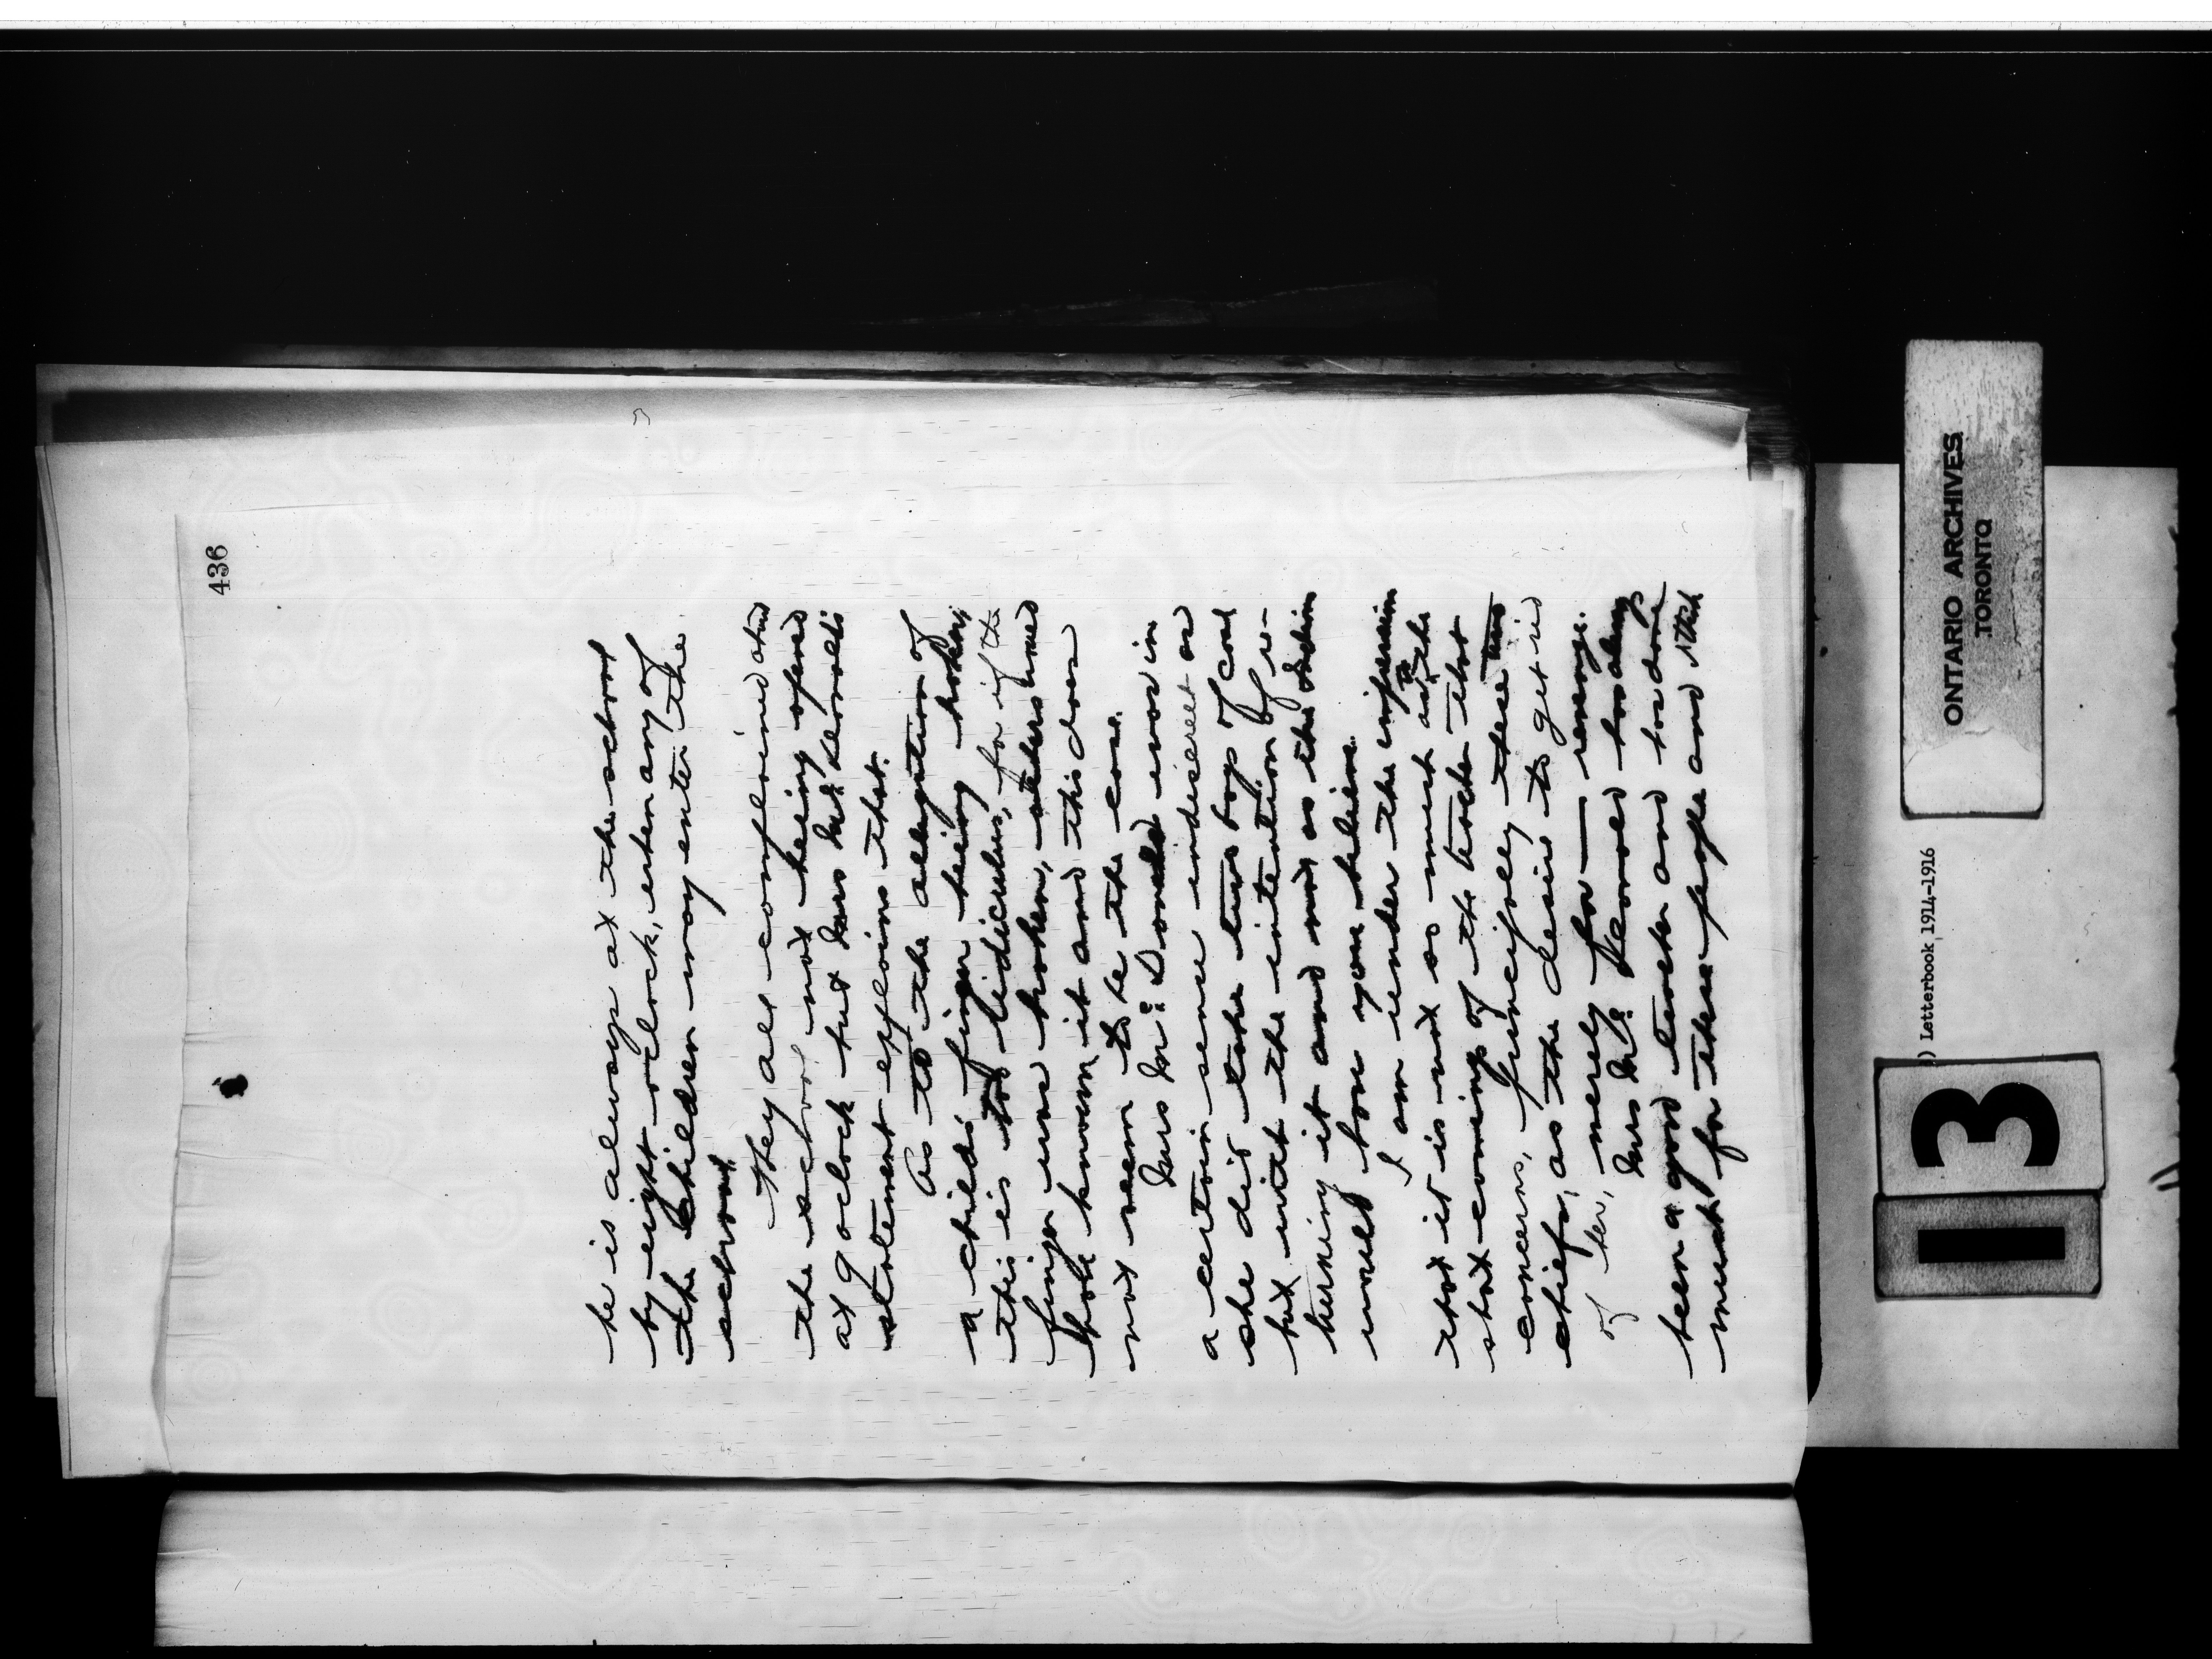 436
he is always at the school
by eight oclock, when any of
the children may enter the
school.
They all complained about
the school not being opened
at 9 oclock but Miss
statement explains that.
As to the allegation of
a childs finger being broken,
this is too rediculus, for if the
finger was broken, others would
have known it and this does
not seem to be the case.
Donald was in
a certain sense indiscreet as
she did take two bags of coal
but with the intention of re-
turning it and not as the Indian
would have you believe.
I am under the impression
that it is not so much as to the
short comings of the teacher that
concerns, principally these two
chiefs, as the desire to get rid
of her, merely for — revenge.
has always
been a good teacher and has done
much for these people and
ONTARIO ARCHIVES
TORONTO
) Letterbook 1914-1916
13